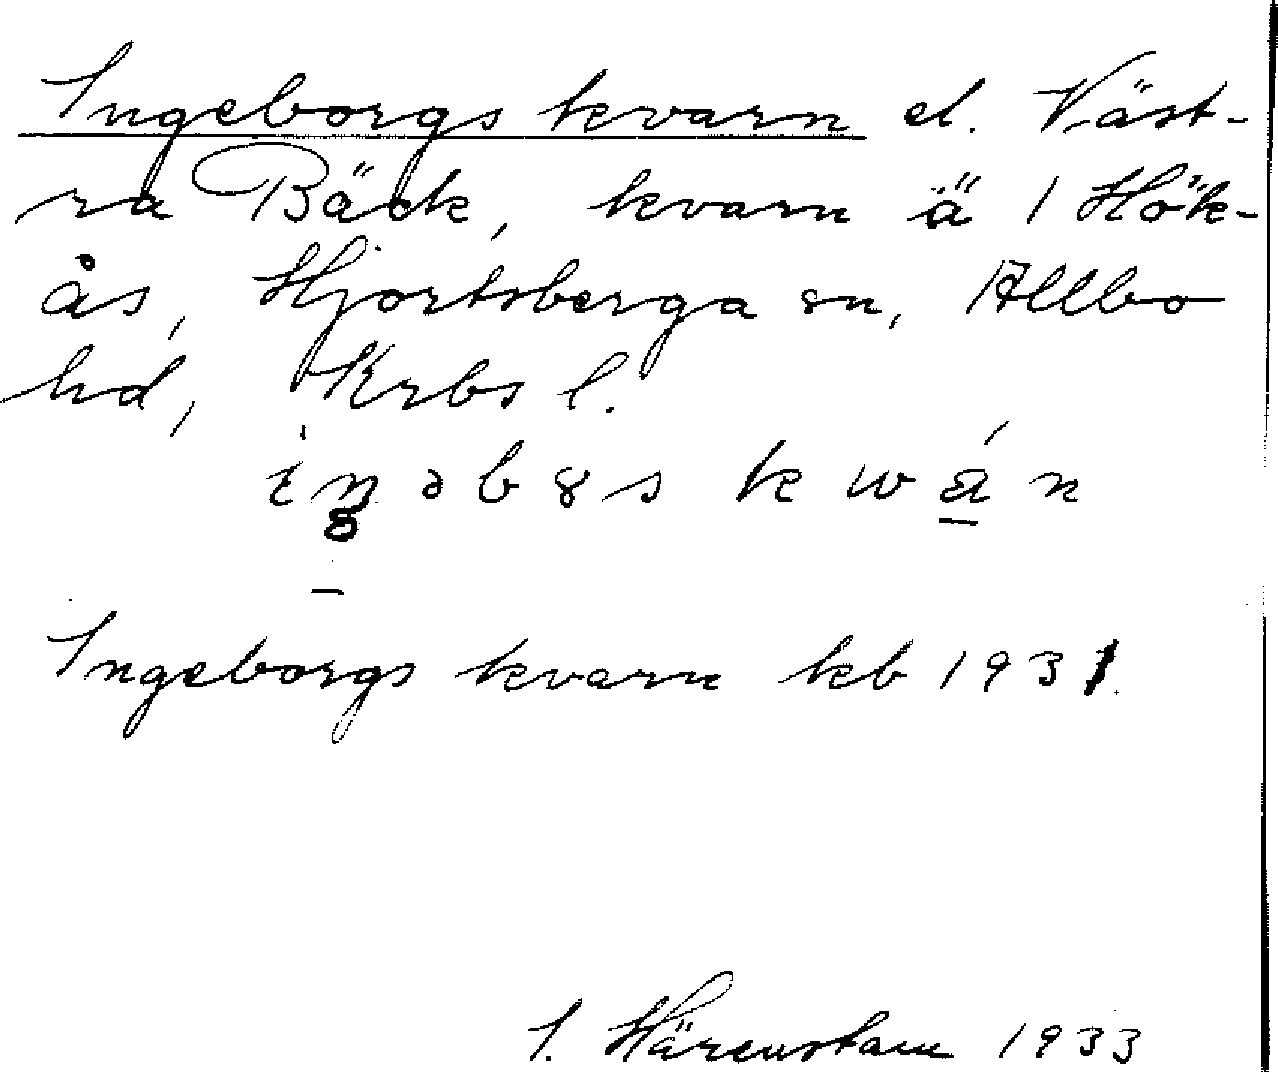 Ingeborgs kvarn el. Väst-
ra Bäck, kvarn ä 1 Hök-
ås, Hjortsberga sn, Allbo
hd, Krbs l.
kwán
Ingeborgs kvarn kb 1931.
I. Härenstam 1933